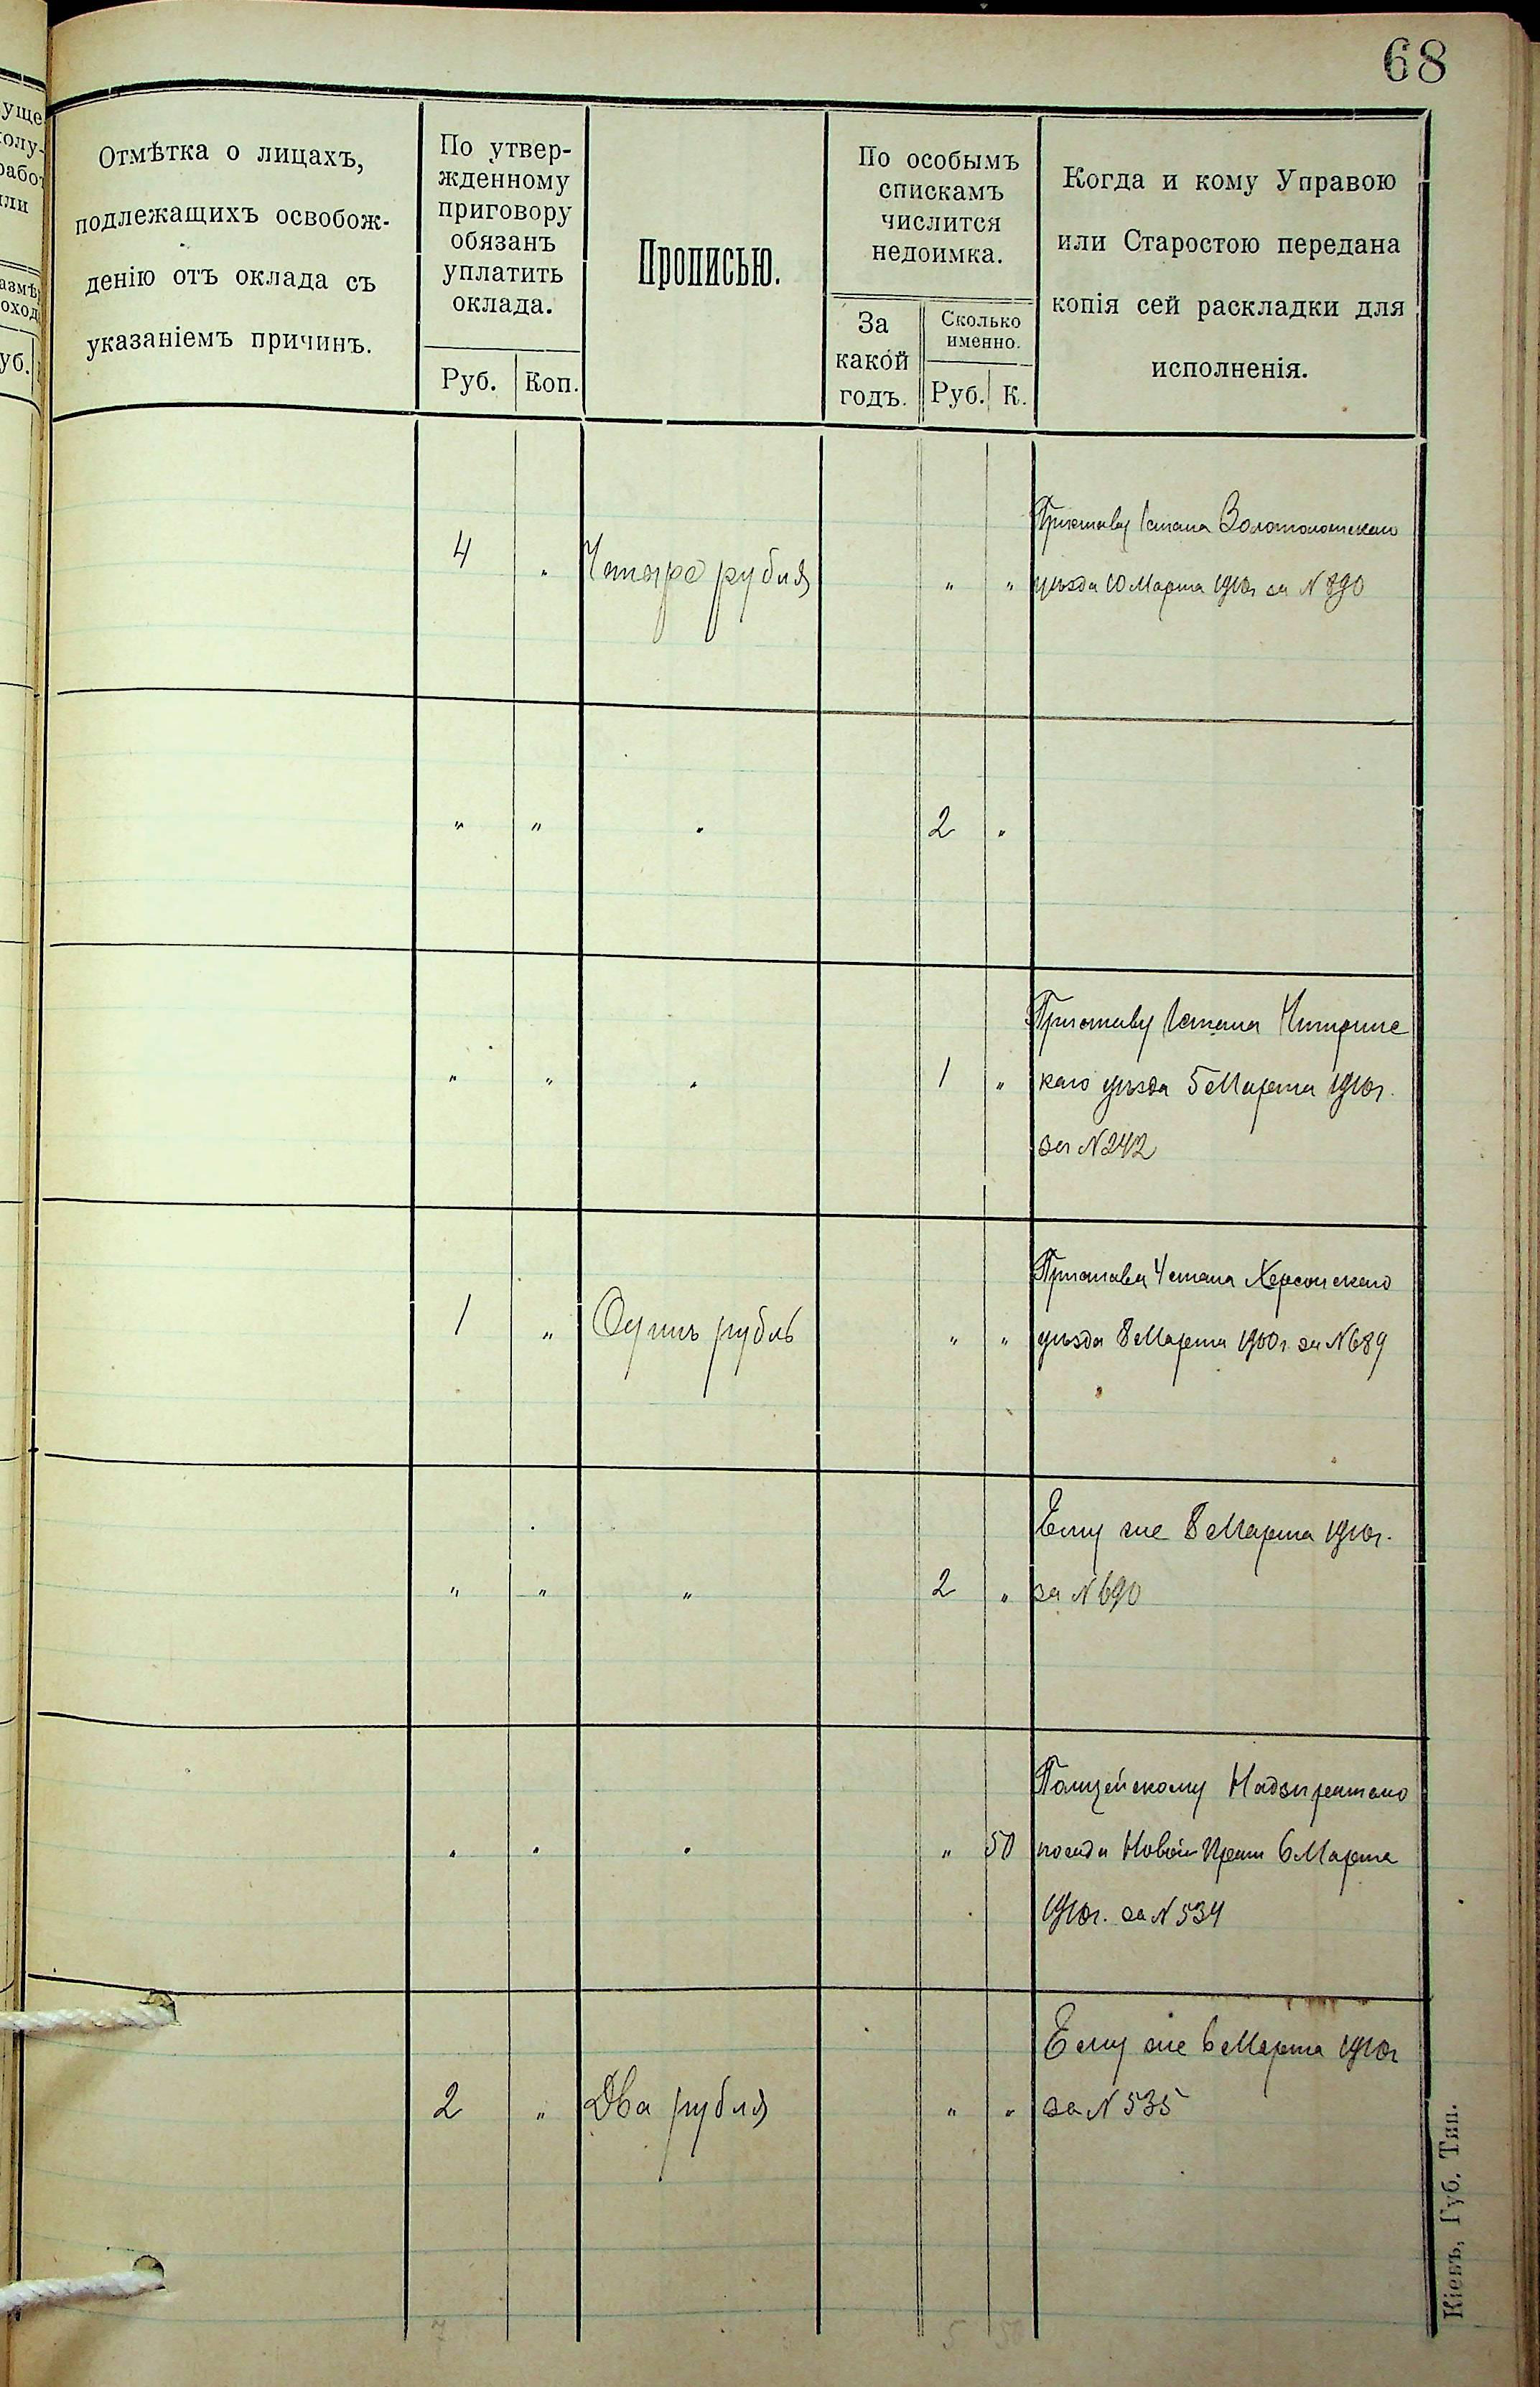 68
Отмѣтка о лицахъ,
подлежащихъ освобож-
денію отъ оклада съ
указаніемъ причинъ.
По утвер-
жденному
приговору
обязанъ
уплатить
оклада.
Руб. Коп.
Прописью.
По особымъ
спискамъ
числится
недоимка.
За
какой
годъ.
Сколько
именно.
Руб. К.
Когда и кому Управою
или Старостою передана
копія сей раскладки для
исполненія.
4 " Четыре рубля " "
Приставу 1 стана Золотоношскаго
уѣзда 10 Марта 1910г за N 890
" " " 2 "
" " " 1 "
Приставу 1 стана
каго уѣзда 5 Марта 1910г.
за N 242
1 " Одинъ рубль " "
Приставу 4 стана Херсонскаго
уѣзда 8 Марта 1900г. за N 689
" " " 2 "
Ему же 8 Марта 1910г.
за N 690
" " " " 50
Полицейскому Надзирателю
посада Новой Праги 6 Марта
1910г. за N 534
2 " Два рубля " "
Ему же 6 Марта 1910г
за N 535
7 5 50
Кіевъ, Губ. Тип.
уще
олу-
рабо
или
азмѣ
оход
уб.